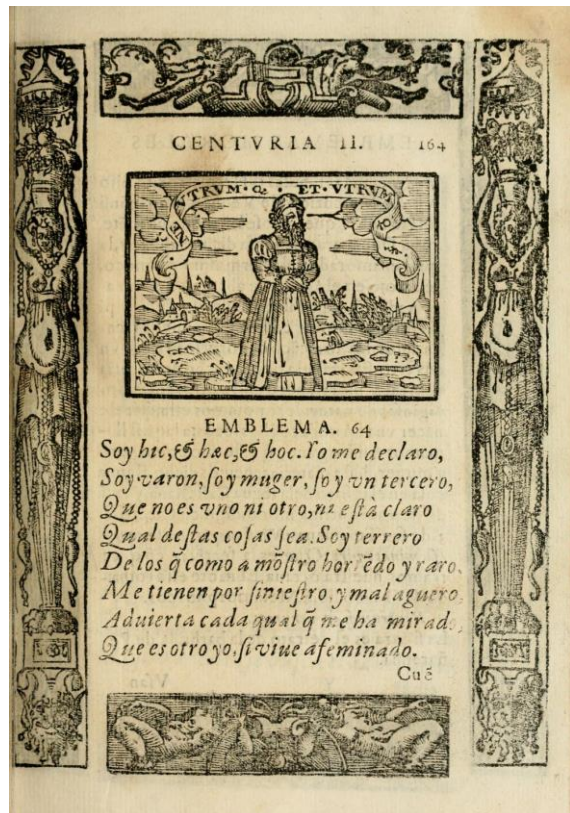 CENTVRIA II. 164
NEVTRUM · Q; · ET · VTRUM Q;
EMBLEMA. 64
Soy hic, & hæc, & hoc. Yo me declaro,
Soy varon, ſoy muger, ſoy vn tercero,
Que no es vno ni otro, ni eſtà claro
Qual deſtas coſas ſea. Soy terrero
De los q̃ como a mõſtro horrẽdo y raro,
Me tienen por ſinieſtro, y mal aguero,
Aduierta cada qual q̃ me ha mirado,
Que es otro yo, ſi viue afeminado.
Cuẽ